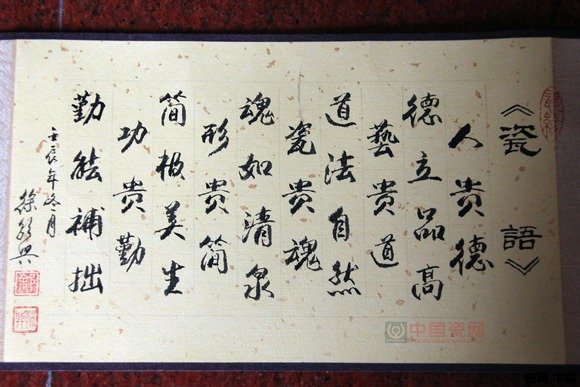 《瓷語》
人贵德
德立品高
藝贵道
道法自然
瓷贵魂
魂如清泉
形贵简
简极美生
功贵勤
勤能補拙
壬辰年冬月
徐
中国瓷网